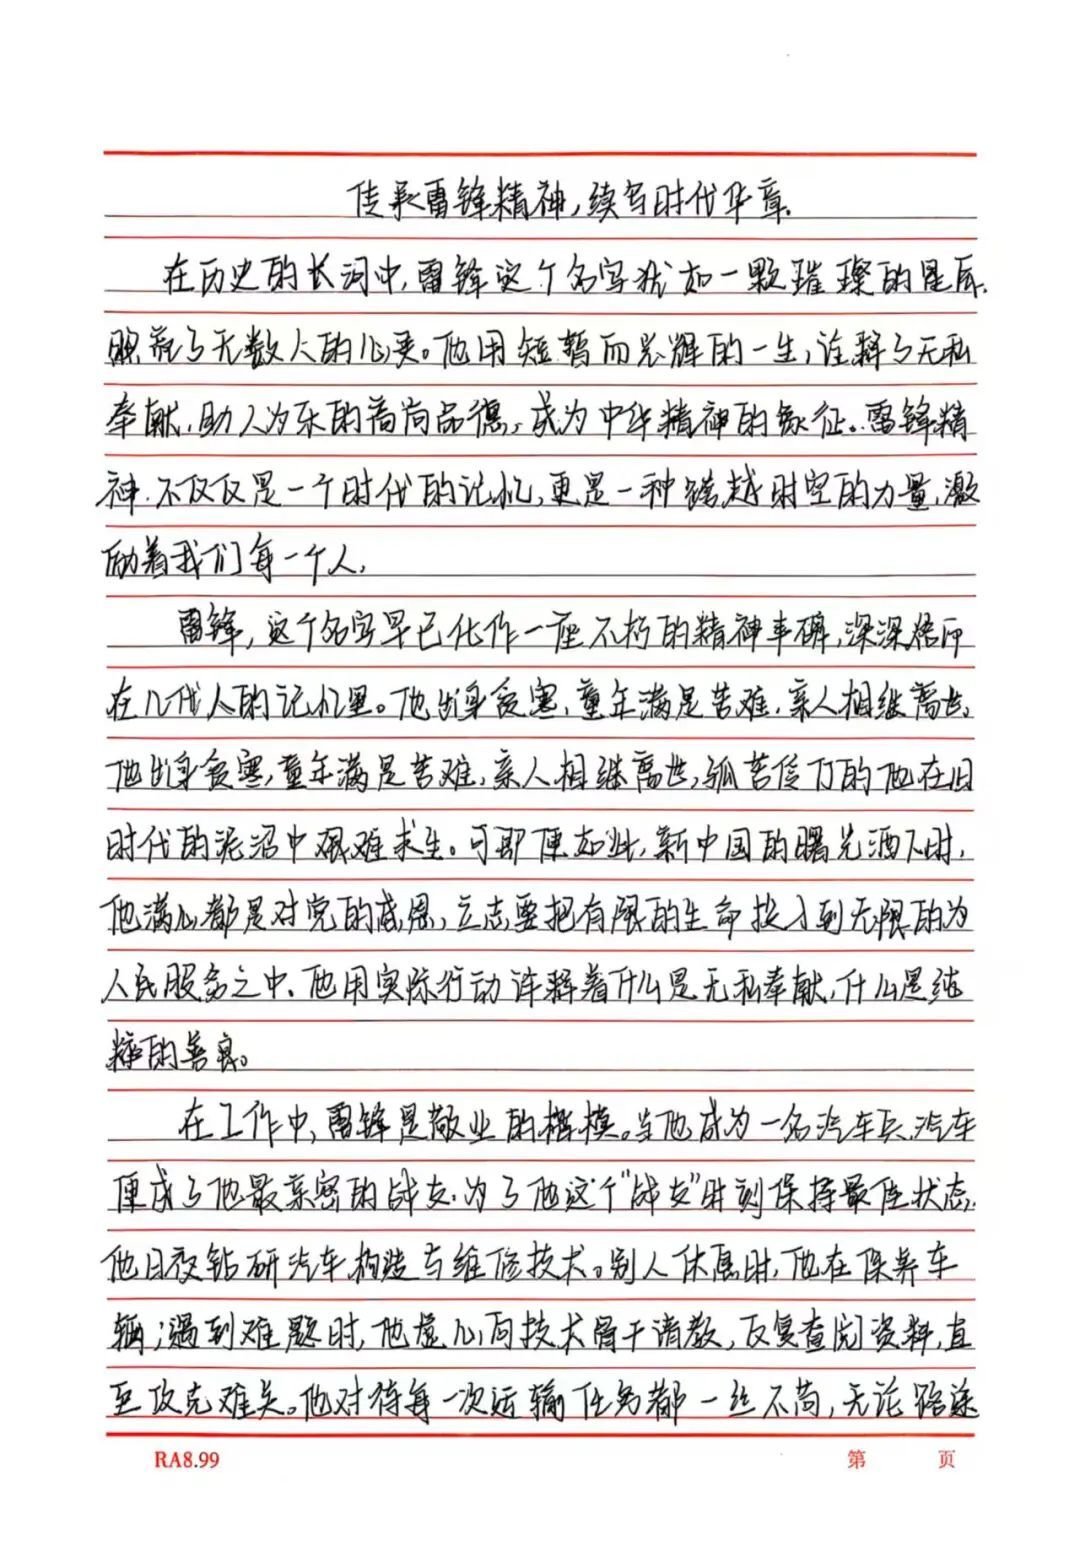 传承雷锋精神,续写时代华章.
在历史的长河中,雷锋这个名字犹如一颗璀璨的星辰,
照亮了无数人的心灵。他用短暂而光辉的一生,诠释了无私
奉献,助人为乐的高尚品德,成为中华精神的象征。雷锋精
神,不仅仅是一个时代的记忆,更是一种跨越时空的力量,激
励着我们每一个人,
雷锋,这个名字早已化作一座不朽的精神丰碑,深深烙印
在几代人的记忆里。他出身贫寒,童年满是苦难,亲人相继离世,
他出身贫寒,童年满是苦难,亲人相继离世,孤苦伶仃的他在旧
时代的泥沼中艰难求生。可即便如此,新中国的曙光洒下时,
他满心都是对党的感恩,立志要把有限的生命投入到无限的为
人民服务之中、他用实际行动诠释着什么是无私奉献,什么是纯
粹的善良。
在工作中,雷锋是敬业的楷模。当他成为一名汽车兵,汽车
便成了他最亲密的战友.为了他这个“战友”时刻保持最佳状态,
他日夜钻研汽车构造与维修技术。别人休息时,他在保养车
辆;遇到难题时,他虚心向技术骨干请教,反复查阅资料,直
至攻克难关。他对待每一次运输任务都一丝不苟,无论路途
RA8.99
第 页